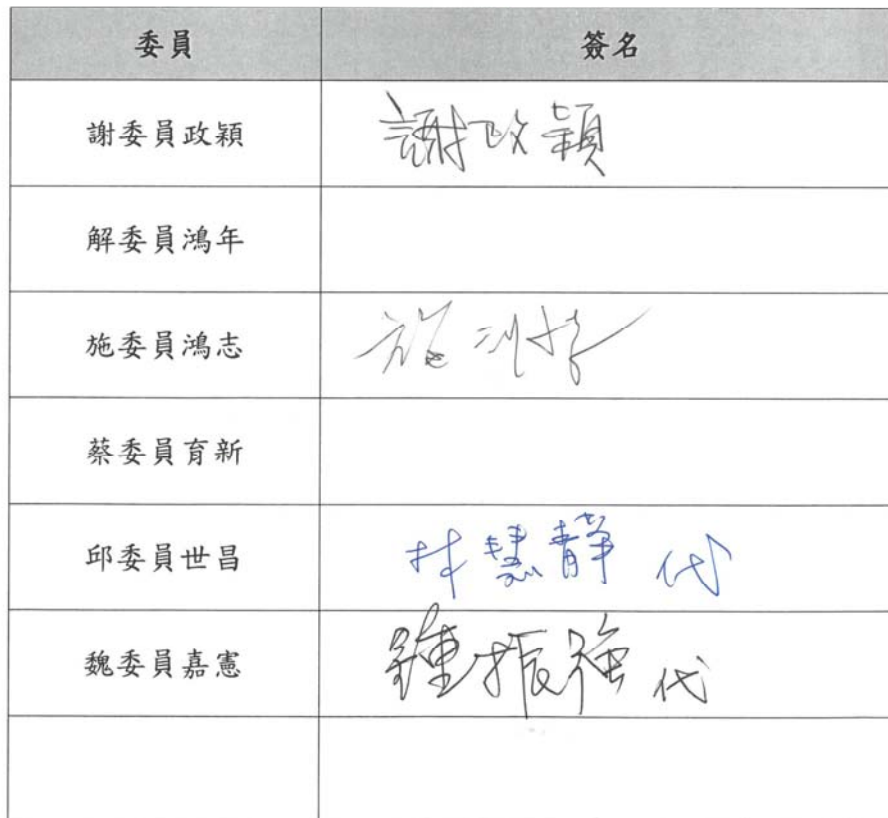 委員 簽名
謝委員政穎 謝政穎
解委員鴻年
施委員鴻志 施鴻志
蔡委員育新
邱委員世昌 林慧靜 代
魏委員嘉憲 鍾振強 代